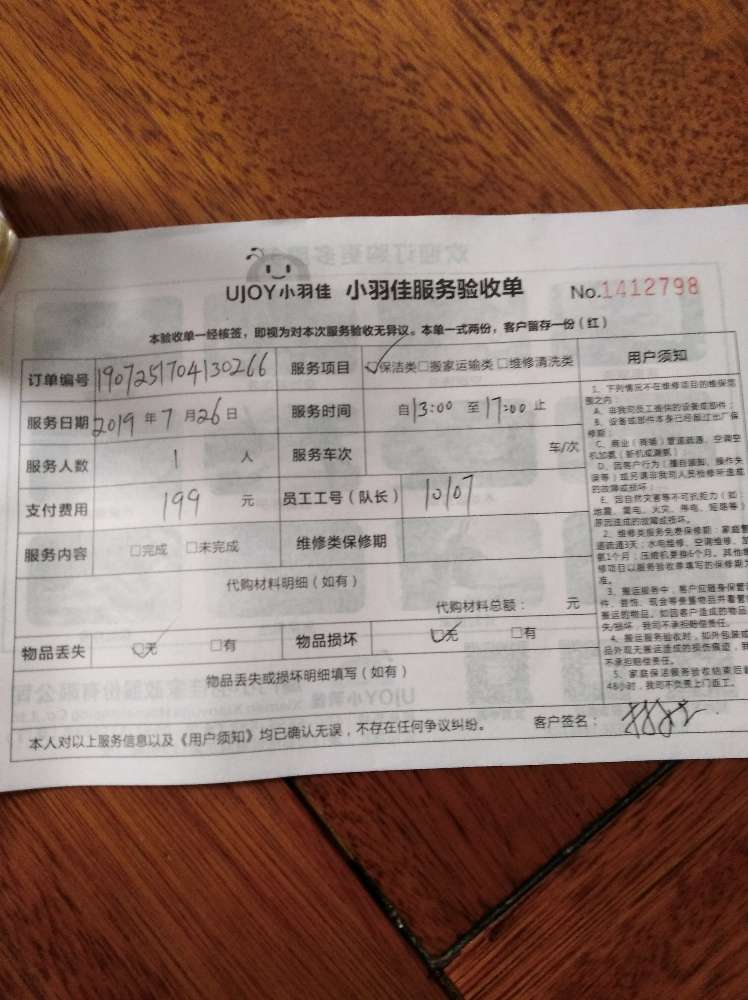 UJOY小羽佳 小羽佳服务验收单 No.1412798
本验收单一经核签,即视为对本次服务验收无异议。本单一式两份,客户留存一份(红)
订单编号 1907251704130266 服务项目 ☑保洁类□搬家运输类□维修清洗类
服务日期 2019年7月26日 服务时间 自13:00至17:00止
服务人数 1人 服务车次 车/次
支付费用 199元 员工工号(队长) 10107
服务内容 □完成 □未完成 维修类保修期
代购材料明细(如有)
代购材料总额: 元
物品丢失 ☑无 □有 物品损坏 ☑无 □有
物品丢失或损坏明细填写(如有)
本人对以上服务信息以及《用户须知》均已确认无误,不存在任何争议纠纷。 客户签名:
用户须知
1、下列情况不在维修项目的维保范
围之内:
A、非我司员工提供的设备或部件;
B、设备或部件本身已经超过出厂保
修期;
C、商业(商铺)管道疏通、空调空
机加氨(新机或漏氨);
D、因客户行为(擅自装卸、操作失
误等)或另请非我司人员检修所造成
的故障或损坏;
E、因自然灾害等不可抗拒力(如:
地震、雷电、火灾、停电、短路等)
原因造成的故障或损坏。
2、维修类服务免费保修期:家庭管
道疏通3天;水电维修、空调维修、加
氨1个月;压缩机更换6个月。其他维
修项目以服务验收单填写的保修期为
准。
3、搬运服务中,客户应随身保管
件、首饰、现金等贵重物品并看管
搬运的物品。如因客户造成的物品
失/损坏,我司不承担赔偿责任。
4、搬运服务验收时,如外包装或
品外观无搬运造成的损伤痕迹,我
不承担赔偿责任。
5、家庭保洁服务验收结束后超
48小时,我司不负责上门返工。